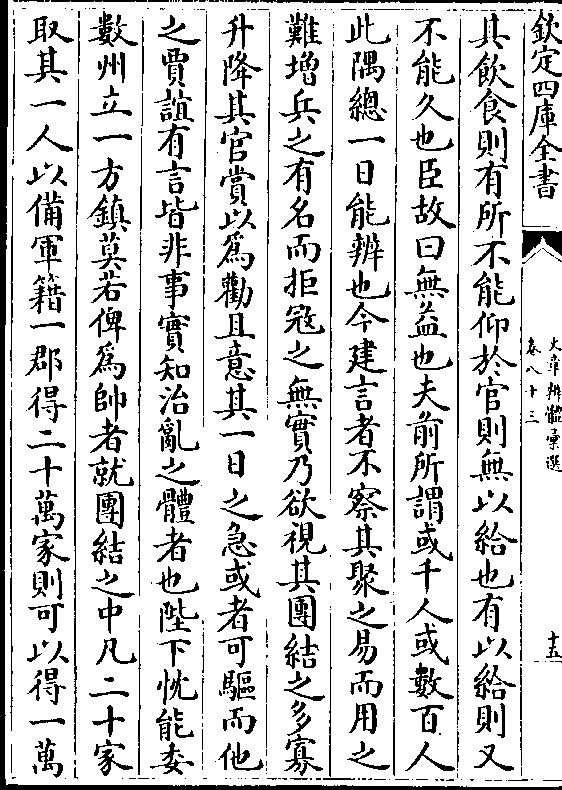 欽定四庫全書
文章辨體彙選
卷八十三
十五
其飲食則有所不能仰於官則無以給也有以給則又
不能久也臣故曰無益也夫前所謂或千人或數百人
此隅總一日能辨也今建言者不察其聚之易而用之
難増兵之有名而拒冦之無實乃欲視其團結之多寡
升降其官賞以為勸且意其一日之急或者可驅而他
之賈誼有言皆非事實知治亂之體者也陛下忱能委
數州立一方鎮莫若俾為帥者就團結之中凡二十家
取其一人以備軍籍一郡得二十萬家則可以得一萬